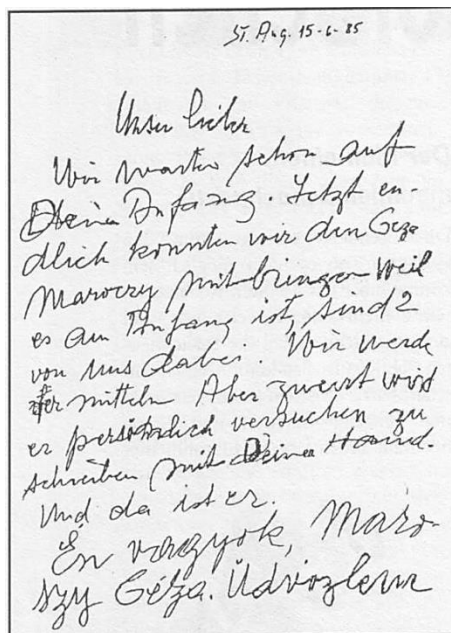 St. Aug. 15-6-85
Unser lieber
Wir warten schon auf
Deine Anfang. Jetzt en-
dlich konnten wir den Geza
Maroczy mitbringen weil
es am Anfang ist, sind 2
von uns dabei. Wir werde
vermitteln Aber zuerst wird
er persönlich versuchen zu
schreiben mit Deiner Hand.
Und da ist er.
Én vagyok, Maro-
szy Géza. Üdvözlem